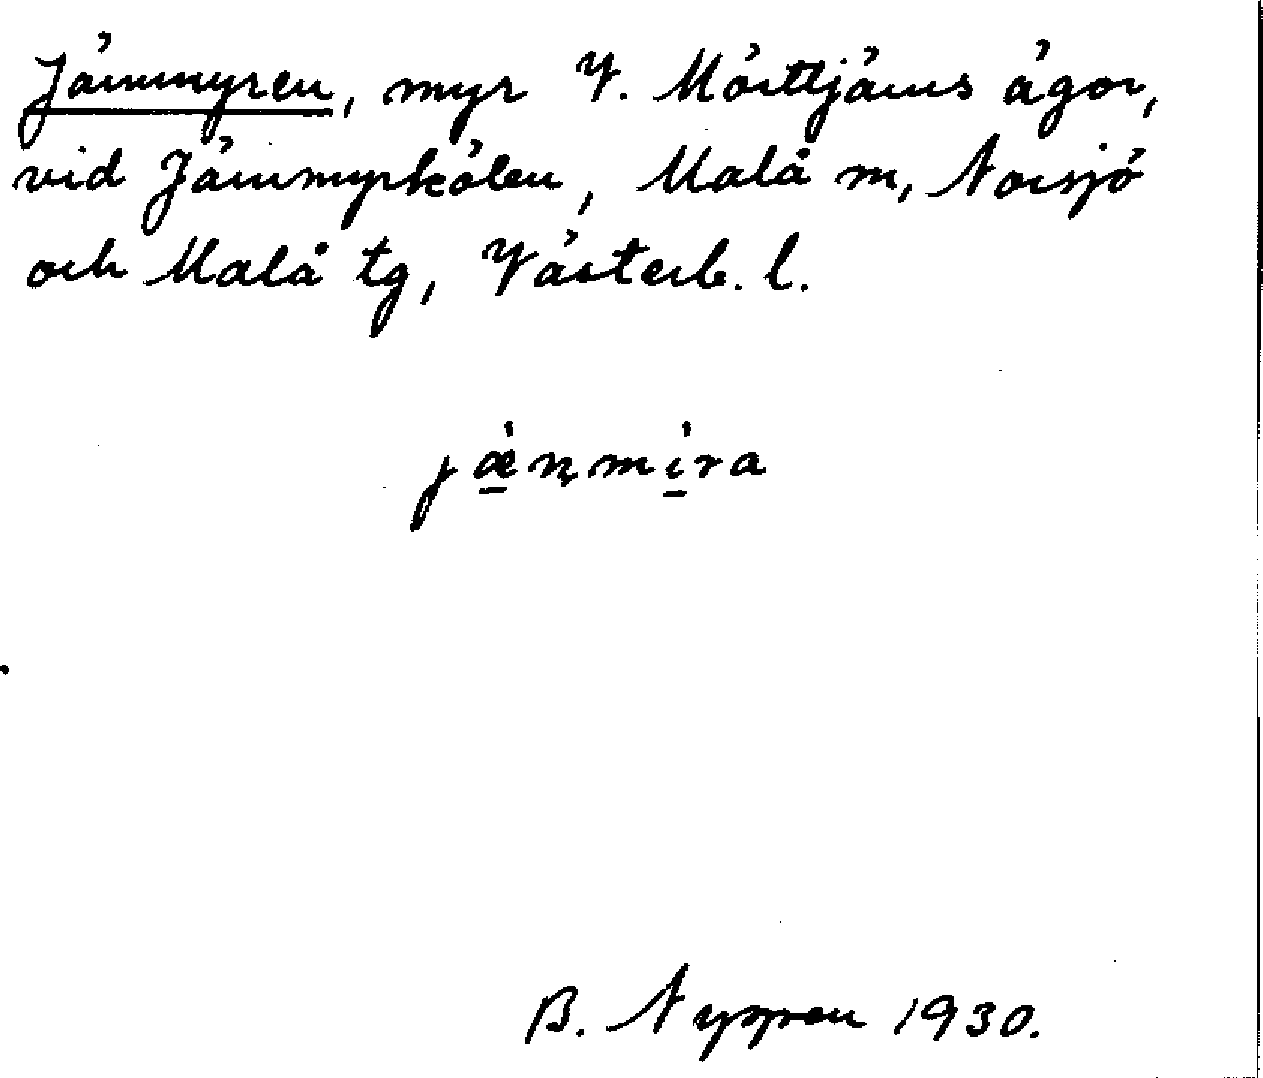 Järnmyren, myr V. Mörttjärns ägor,
vid Järnmyrkölen, Malå sn, Norsjö
och Malå tg, Västerb. l.
jæ̀ṇmìra
B. Nygren 1930.